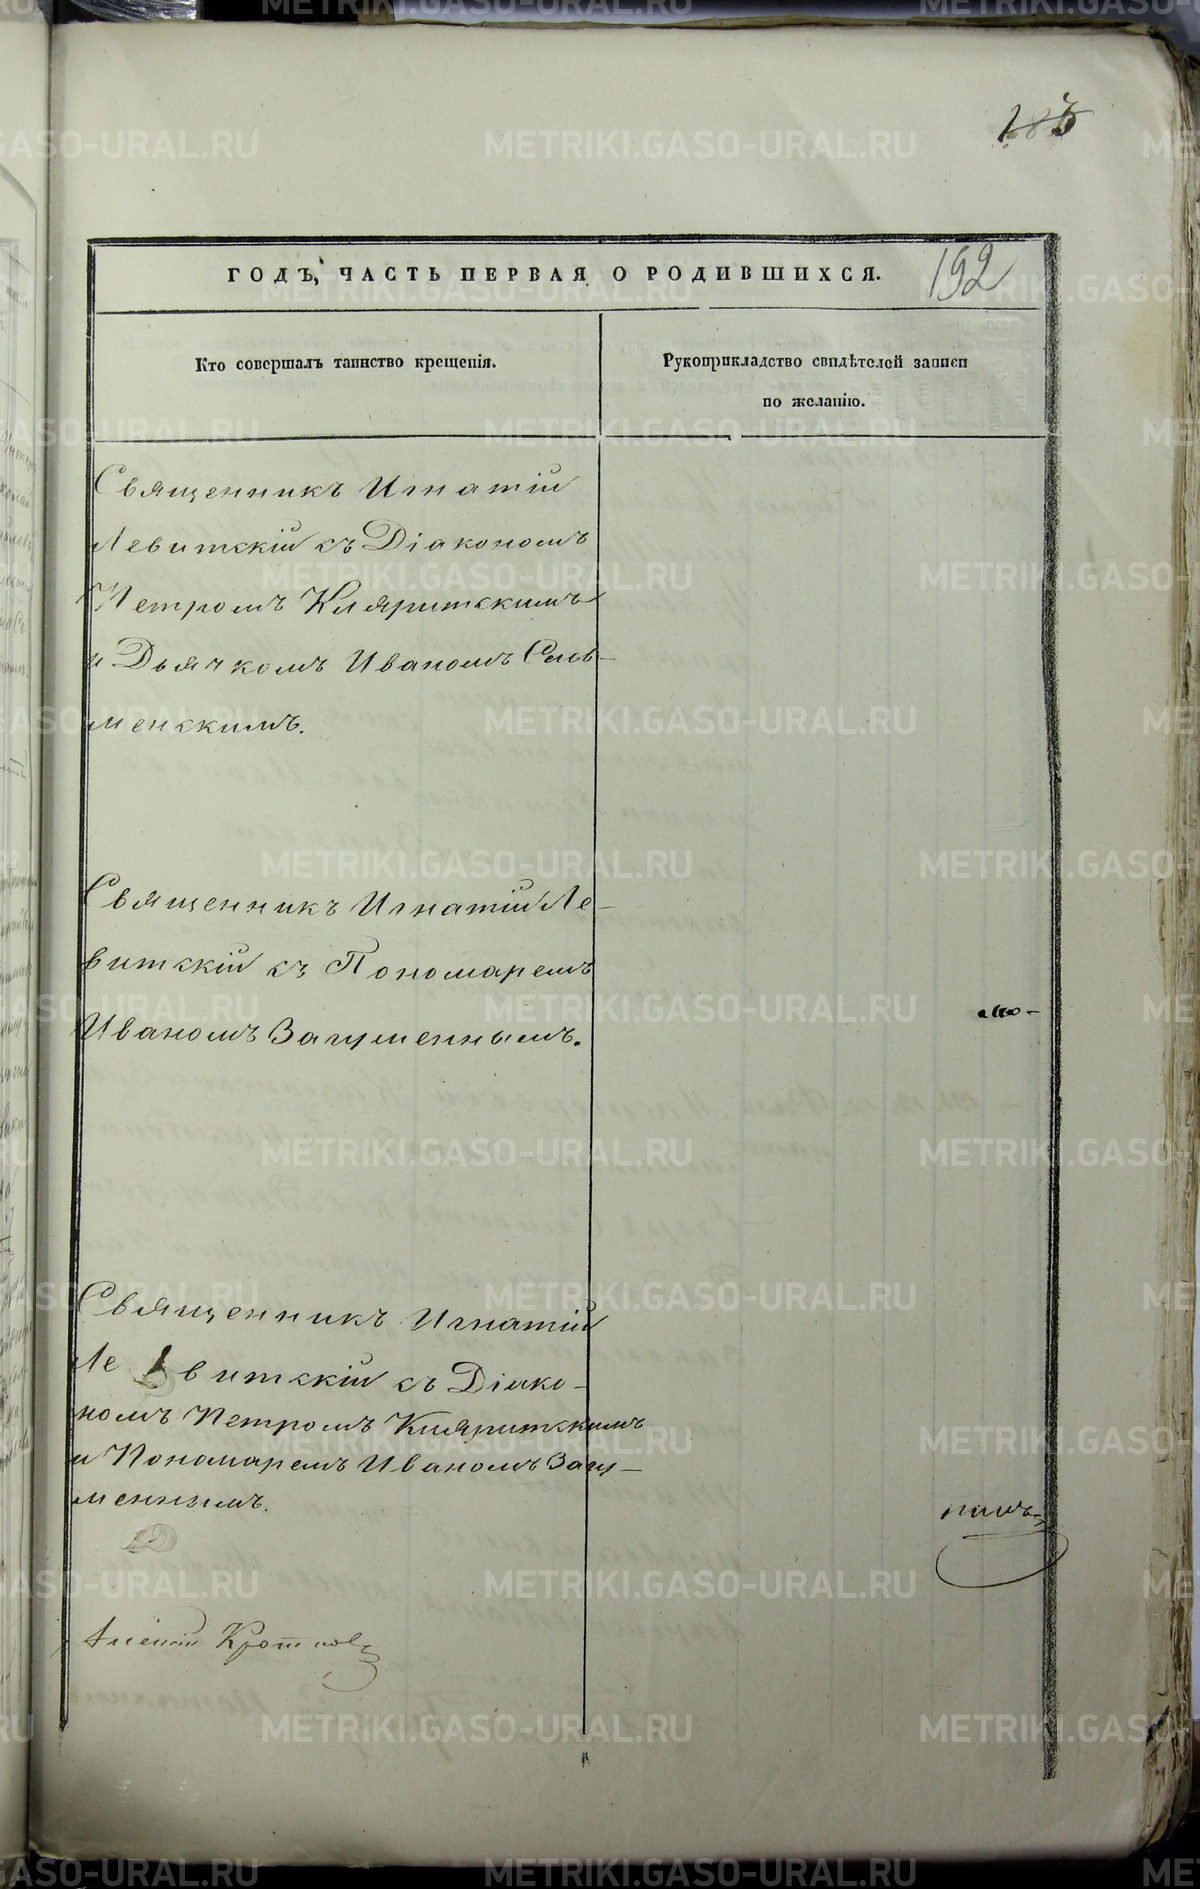 185
ГОДЪ, ЧАСТЬ ПЕРВАЯ О РОДИВШИХСЯ.
192
Кто совершалъ таинство крещенія.
Рукоприкладство свидѣтелей записи
по желанію.
Священникъ Игнатій
Левитскій съ Діакономъ
Петромъ Кляритскимъ
и Дьячкомъ Иваномъ
менскимъ.
Священникъ Игнатій Ле-
витскій съ Пономаремъ
Иваномъ Загуменнымъ.
Священникъ Игнатій
Ле витскій съ Діако-
номъ Петромъ Кляритскимъ
и Пономаремъ Иваномъ Загу-
меннымъ.
METRIKI.GASO-URAL.RU